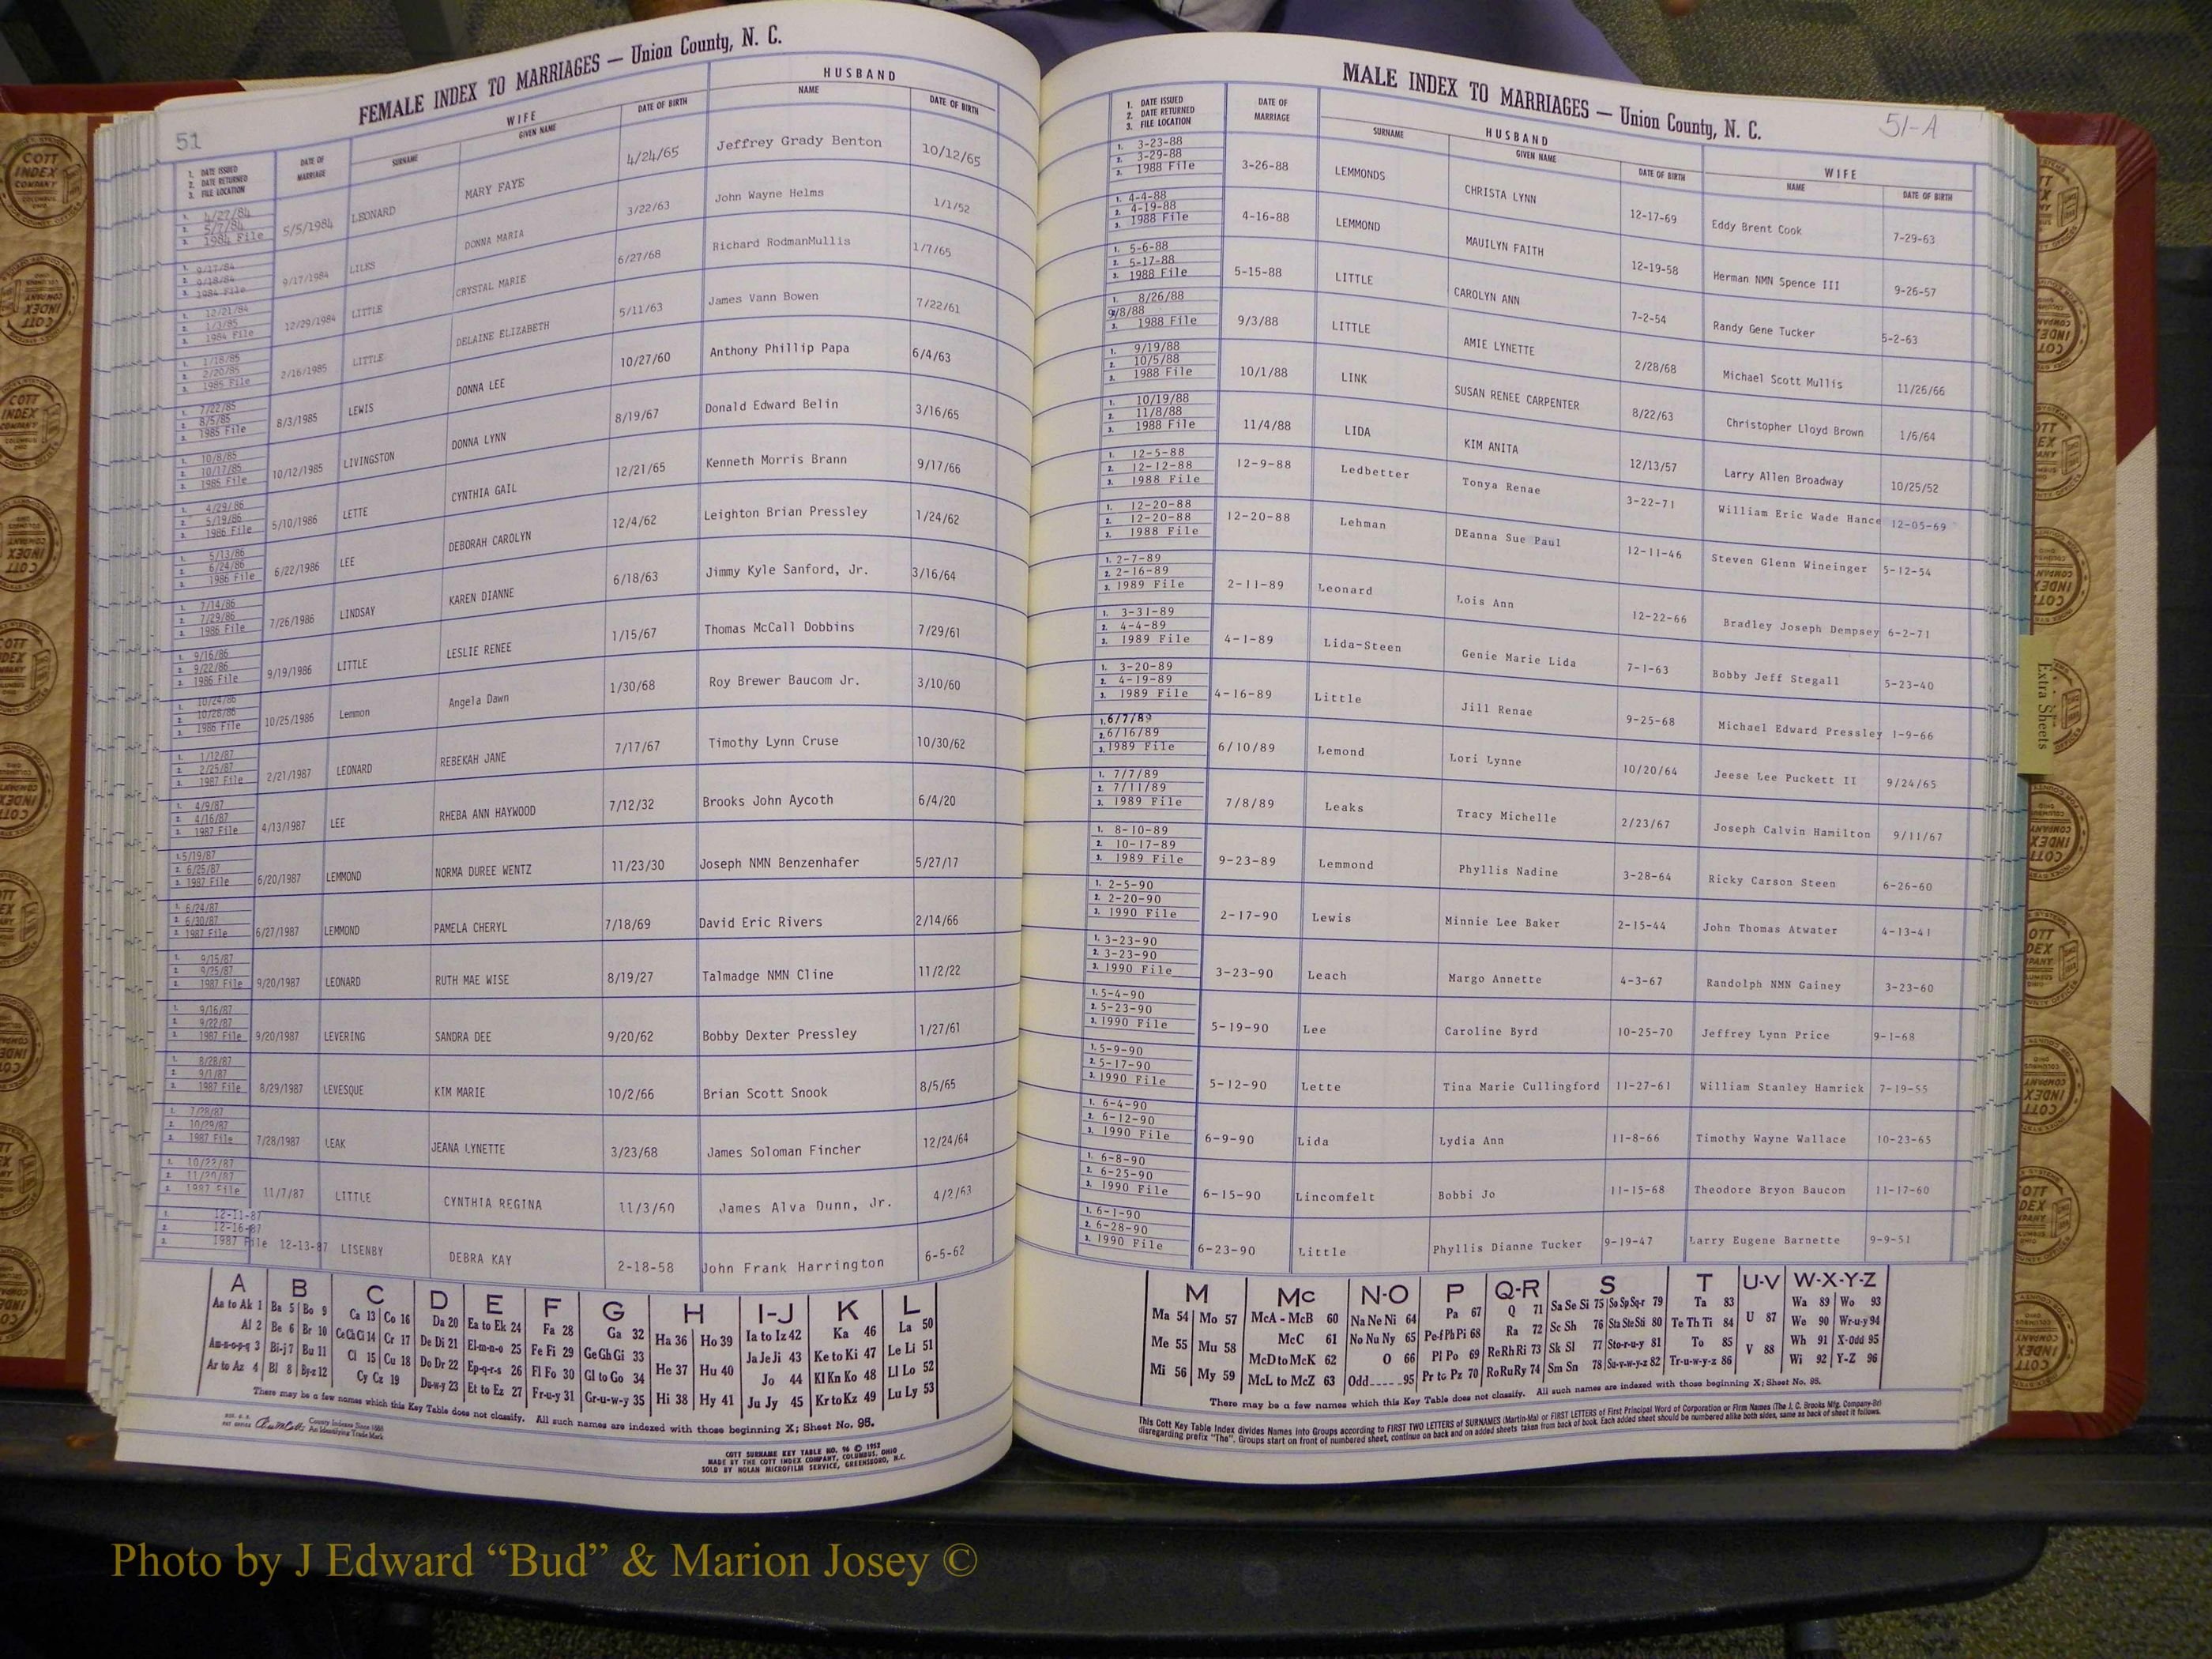 51
FEMALE INDEX TO MARRIAGES — Union County, N. C.
WIFE HUSBAND
1. DATE ISSUED 2. DATE RETURNED 3. FILE LOCATION DATE OF MARRIAGE SURNAME GIVEN NAME DATE OF BIRTH NAME DATE OF BIRTH
1. 4/27/84 2. 5/7/84 3. 1984 File 5/5/1984 LEONARD MARY FAYE 4/24/65 Jeffrey Grady Benton 10/12/65
1. 9/17/84 2. 9/18/84 3. 1984 File 9/17/1984 LILES DONNA MARIA 3/22/63 John Wayne Helms 1/1/52
1. 12/21/84 2. 1/3/85 3. 1984 File 12/29/1984 LITTLE CRYSTAL MARIE 6/27/68 Richard RodmanMullis 1/7/65
1. 1/18/85 2. 2/20/85 3. 1985 File 2/16/1985 LITTLE DELAINE ELIZABETH 5/11/63 James Vann Bowen 7/22/61
1. 7/22/85 2. 8/5/85 3. 1985 File 8/3/1985 LEWIS DONNA LEE 10/27/60 Anthony Phillip Papa 6/4/63
1. 10/8/85 2. 10/17/85 3. 1985 File 10/12/1985 LIVINGSTON DONNA LYNN 8/19/67 Donald Edward Belin 3/16/65
1. 4/29/86 2. 5/19/86 3. 1986 File 5/10/1986 LETTE CYNTHIA GAIL 12/21/65 Kenneth Morris Brann 9/17/66
1. 5/13/86 2. 6/24/86 3. 1986 File 6/22/1986 LEE DEBORAH CAROLYN 12/4/62 Leighton Brian Pressley 1/24/62
1. 7/14/86 2. 7/29/86 3. 1986 File 7/26/1986 LINDSAY KAREN DIANNE 6/18/63 Jimmy Kyle Sanford, Jr. 3/16/64
1. 9/16/86 2. 9/22/86 3. 1986 File 9/19/1986 LITTLE LESLIE RENEE 1/15/67 Thomas McCall Dobbins 7/29/61
1. 10/24/86 2. 10/28/86 3. 1986 File 10/25/1986 Lemmon Angela Dawn 1/30/68 Roy Brewer Baucom Jr. 3/10/60
1. 1/12/87 2. 2/25/87 3. 1987 File 2/21/1987 LEONARD REBEKAH JANE 7/17/67 Timothy Lynn Cruse 10/30/62
1. 4/9/87 2. 4/16/87 3. 1987 File 4/13/1987 LEE RHEBA ANN HAYWOOD 7/12/32 Brooks John Aycoth 6/4/20
1. 5/19/87 2. 6/25/87 3. 1987 File 6/20/1987 LEMMOND NORMA DUREE WENTZ 11/23/30 Joseph NMN Benzenhafer 5/27/17
1. 6/24/87 2. 6/30/87 3. 1987 File 6/27/1987 LEMMOND PAMELA CHERYL 7/18/69 David Eric Rivers 2/14/66
1. 9/15/87 2. 9/25/87 3. 1987 File 9/20/1987 LEONARD RUTH MAE WISE 8/19/27 Talmadge NMN Cline 11/2/22
1. 9/16/87 2. 9/22/87 3. 1987 File 9/20/1987 LEVERING SANDRA DEE 9/20/62 Bobby Dexter Pressley 1/27/61
1. 8/28/87 2. 9/1/87 3. 1987 File 8/29/1987 LEVESQUE KIM MARIE 10/2/66 Brian Scott Snook 8/5/65
1. 7/28/87 2. 10/29/87 3. 1987 File 7/28/1987 LEAK JEANA LYNETTE 3/23/68 James Soloman Fincher 12/24/64
1. 10/22/87 2. 11/20/87 3. 1987 File 11/7/87 LITTLE CYNTHIA REGINA 11/3/60 James Alva Dunn, Jr. 4/2/63
1. 12-11-87 2. 12-16-87 3. 1987 File 12-13-87 LISENBY DEBRA KAY 2-18-58 John Frank Harrington 6-5-62
A B C D E F G H I-J K L
Aa to Ak 1 Ba 5 Bo 9 Ca 13 Co 16 Da 20 Ea to Ek 24 Fa 28 Ga 32 Ha 36 Ho 39 Ia to Iz 42 Ka 46 La 50
Al 2 Be 6 Br 10 Ce Ch Ci 14 Cr 17 De Di 21 El-m-n-o 25 Fe Fi 29 Ge Gh Gi 33 He 37 Hu 40 Ja Je Ji 43 Ke to Ki 47 Le Li 51
Am-n-o-p-q 3 Bi-j 7 Bu 11 Cl 15 Cu 18 Do Dr 22 Ep-q-r-s 26 Fl Fo 30 Gl to Go 34 Hi 38 Hy 41 Jo 44 Kl Kn Ko 48 Ll Lo 52
Ar to Az 4 Bl 8 By-z 12 Cy Cz 19 Du-w-y 23 Et to Ez 27 Fr-u-y 31 Gr-u-w-y 35 Ju Jy 45 Kr to Kz 49 Lu Ly 53
There may be a few names which this Key Table does not classify. All such names are indexed with those beginning X; Sheet No. 98.
REG. U. S. PAT OFFICE County Indexes Since 1888 An Identifying Trade Mark
COTT SURNAME KEY TABLE NO. 96 © 1952
MADE BY THE COTT INDEX COMPANY, COLUMBUS, OHIO
SOLD BY NOLAN MICROFILM SERVICE, GREENSBORO, N.C.
MALE INDEX TO MARRIAGES — Union County, N. C.
51-A
HUSBAND WIFE
1. DATE ISSUED 2. DATE RETURNED 3. FILE LOCATION DATE OF MARRIAGE SURNAME GIVEN NAME DATE OF BIRTH NAME DATE OF BIRTH
1. 3-23-88 2. 3-29-88 3. 1988 File 3-26-88 LEMMONDS CHRISTA LYNN 12-17-69 Eddy Brent Cook 7-29-63
1. 4-4-88 2. 4-19-88 3. 1988 File 4-16-88 LEMMOND MAUILYN FAITH 12-19-58 Herman NMN Spence III 9-26-57
1. 5-6-88 2. 5-17-88 3. 1988 File 5-15-88 LITTLE CAROLYN ANN 7-2-54 Randy Gene Tucker 5-2-63
1. 8/26/88 9/8/88 3. 1988 File 9/3/88 LITTLE AMIE LYNETTE 2/28/68 Michael Scott Mullis 11/26/66
1. 9/19/88 2. 10/5/88 3. 1988 File 10/1/88 LINK SUSAN RENEE CARPENTER 8/22/63 Christopher Lloyd Brown 1/6/64
1. 10/19/88 2. 11/8/88 3. 1988 File 11/4/88 LIDA KIM ANITA 12/13/57 Larry Allen Broadway 10/25/52
1. 12-5-88 2. 12-12-88 3. 1988 File 12-9-88 Ledbetter Tonya Renae 3-22-71 William Eric Wade Hance 12-05-69
1. 12-20-88 2. 12-20-88 3. 1988 File 12-20-88 Lehman DEanna Sue Paul 12-11-46 Steven Glenn Wineinger 5-12-54
1. 2-7-89 2. 2-16-89 3. 1989 File 2-11-89 Leonard Lois Ann 12-22-66 Bradley Joseph Dempsey 6-2-71
1. 3-31-89 2. 4-4-89 3. 1989 File 4-1-89 Lida-Steen Genie Marie Lida 7-1-63 Bobby Jeff Stegall 5-23-40
1. 3-20-89 2. 4-19-89 3. 1989 File 4-16-89 Little Jill Renae 9-25-68 Michael Edward Pressley 1-9-66
1. 6/7/89 2. 6/16/89 3. 1989 File 6/10/89 Lemond Lori Lynne 10/20/64 Jeese Lee Puckett II 9/24/65
1. 7/7/89 2. 7/11/89 3. 1989 File 7/8/89 Leaks Tracy Michelle 2/23/67 Joseph Calvin Hamilton 9/11/67
1. 8-10-89 2. 10-17-89 3. 1989 File 9-23-89 Lemmond Phyllis Nadine 3-28-64 Ricky Carson Steen 6-26-60
1. 2-5-90 2. 2-20-90 3. 1990 File 2-17-90 Lewis Minnie Lee Baker 2-15-44 John Thomas Atwater 4-13-41
1. 3-23-90 2. 3-23-90 3. 1990 File 3-23-90 Leach Margo Annette 4-3-67 Randolph NMN Gainey 3-23-60
1. 5-4-90 2. 5-23-90 3. 1990 File 5-19-90 Lee Caroline Byrd 10-25-70 Jeffrey Lynn Price 9-1-68
1. 5-9-90 2. 5-17-90 3. 1990 File 5-12-90 Lette Tina Marie Cullingford 11-27-61 William Stanley Hamrick 7-19-55
1. 6-4-90 2. 6-12-90 3. 1990 File 6-9-90 Lida Lydia Ann 11-8-66 Timothy Wayne Wallace 10-23-65
1. 6-8-90 2. 6-25-90 3. 1990 File 6-15-90 Lincomfelt Bobbi Jo 11-15-68 Theodore Bryon Baucom 11-17-60
1. 6-1-90 2. 6-28-90 3. 1990 File 6-23-90 Little Phyllis Dianne Tucker 9-19-47 Larry Eugene Barnette 9-9-51
M Mc N-O P Q-R S T U-V W-X-Y-Z
Ma 54 Mo 57 McA - McB 60 Na Ne Ni 64 Pa 67 Q 71 Sa Se Si 75 So Sp Sq-r 79 Ta 83 U 87 Wa 89 Wo 93
Me 55 Mu 58 McC 61 No Nu Ny 65 Pe-f Ph Pi 68 Ra 72 Sc Sh 76 Sta Ste Sti 80 Te Th Ti 84 V 88 We 90 Wr-u-y 94
Mi 56 My 59 McD to McK 62 O 66 Pl Po 69 Re Rh Ri 73 Sk Sl 77 Sto-r-u-y 81 To 85 Wh 91 X-Odd 95
McL to McZ 63 Odd 95 Pr to Pz 70 Ro Ru Ry 74 Sm Sn 78 Su-v-w-y-z 82 Tr-u-w-y-z 86 Wi 92 Y-Z 96
There may be a few names which this Key Table does not classify. All such names are indexed with those beginning X; Sheet No. 98.
This Cott Key Table Index divides Names into Groups according to FIRST TWO LETTERS of SURNAMES (Martin-Ma) or FIRST LETTERS of First Principal Word of Corporation or Firm Names (The J. C. Brooks Mfg. Company-Br)
disregarding prefix "The". Groups start on front of numbered sheet, continue on back and on added sheets taken from back of book. Each added sheet should be numbered alike both sides, same as back of sheet it follows.
Extra Sheets
COTT INDEX COMPANY
Photo by J Edward “Bud” & Marion Josey ©